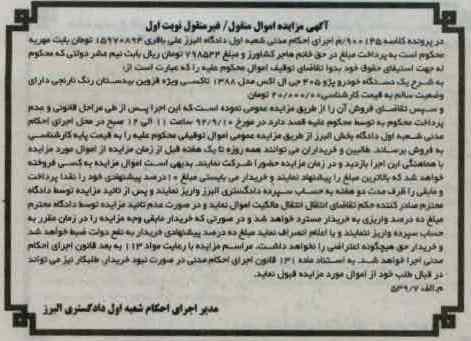 آگهی مزایده اموال منقول/ غیرمنقول نوبت اول
در پرونده کلاسه ۹۰۰/۱۴۵م اجرای احکام مدنی شعبه اول دادگاه البرز علی باقری ۱۵۹۷۰۸۹۴ تومان بابت مهریه
محکوم است به پرداخت مبلغ در حق خانم هاجر کشاورز و مبلغ ۷۹۸۵۴۴ تومان ریال بابت نیم عشر دولتی که محکوم
له جهت استیفای حقوق خود بدوا تقاضای توقیف اموال محکوم علیه را که عبارت است از:
به شرح یک دستگاه خودرو پژو ۴۰۵ جی ال اکس مدل ۱۳۸۸ تاکسی ویژه قزوین بیدستان رنگ نارنجی دارای
وضعیت سالم به قیمت کارشناسی ۲۰/۰۰۰/۰۰۰ تومان
و سپس تقاضای فروش آن را از طریق مزایده عمومی نموده است که این اجرا پس از طی مراحل قانونی و عدم
پرداخت محکوم به توسط محکوم علیه قصد دارد در مورخ ۹۲/۹/۱۰ ساعت ۱۱ الی ۱۲ صبح در محل اجرای احکام
مدنی شعبه اول دادگاه بخش البرز از طریق مزایده عمومی اموال توقیفی محکوم علیه را به قیمت پایه کارشناسی
به فروش برساند. طالبین و خریداران می توانند همه روزه تا یک هفته قبل از زمان مزایده از اموال مورد مزایده
با هماهنگی این اجرا بازدید و در زمان مزایده حضورا شرکت نمایند. بدیهی است اموال مزایده به کسی فروخته
خواهد شد که بالاترین مبلغ را پیشنهاد نماید و خریدار می بایستی مبلغ ۱۰ درصد پیشنهادی خود را نقدا پرداخت
و مابقی را ظرف مدت دو هفته به حساب سپرده دادگستری البرز واریز نمایند و پس از تائید مزایده توسط دادگاه
محترم صادر کننده حکم تقاضای انتقال مالکیت اموال نماید و در صورت عدم تائید مزایده توسط دادگاه محترم
مبلغ ده درصد واریزی به خریدار مسترد خواهد شد و در صورتی که خریدار مابقی وجه مزایده را در زمان مقرر به
حساب سپرده واریز ننمایند و یا اعلام انصراف نماید مبلغ ده درصد پیشنهادی خریدار به نفع دولت ضبط خواهد شد
و خریدار حق هیچگونه اعتراضی را نخواهد داشت. مراسم مزایده با رعایت مواد ۱۱۳ به بعد قانون اجرای احکام
مدنی اجرا خواهد شد. به استناد ماده ۱۳۱ قانون اجرای احکام مدنی در صورت نبود خریدار، طلبکار نیز می تواند
در قبال طلب خود از اموال مورد مزایده قبول نماید.
م.الف ۵۴۹/۷
مدیر اجرای احکام شعبه اول دادگستری البرز